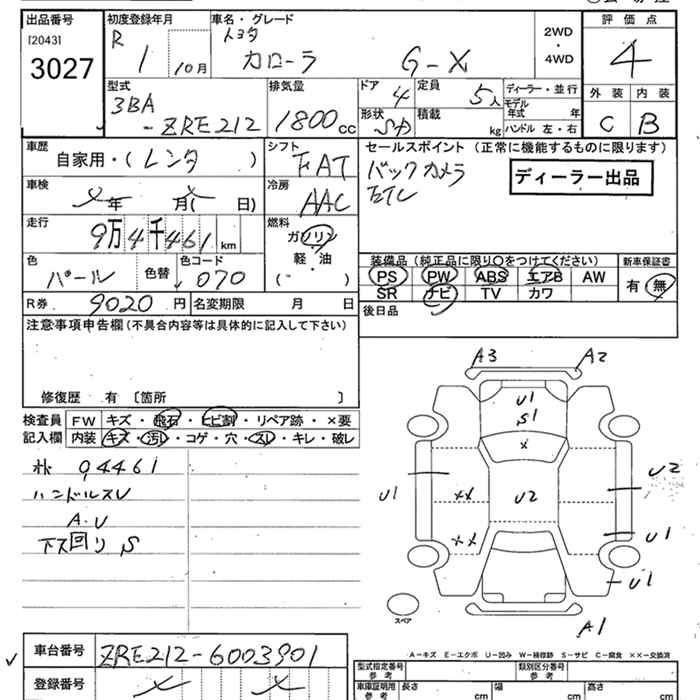 出品番号
[2043]
3027
初度登録年月
R 1 10月
車名・グレード
トヨタ
カローラ G-X
2WD
・
4WD
評価点
4
外装 内装
C B
型式
3BA
-ZRE212
排気量
1800cc
ドア 4
定員 5人
ディーラー・並行
モデル年式 年
形状 SD
積載 kg
ハンドル 左・右
車歴
自家用・(レンタ )
シフト
FAT
セールスポイント (正常に機能するものに限ります)
バックカメラ
ETC
ディーラー出品
車検
年 月( 日)
冷房
AAC
走行
9万4千461km
燃料
ガソリン
・
軽・油
( )
色
パール
色替
色コード
070
装備品 (純正品に限り○をつけてください)
PS PW ABS エアB AW
SR ナビ TV カワ
新車保証書
有・無
R券 9020円
名変期限 月 日
後日品
注意事項申告欄 (不具合内容等は具体的に記入して下さい)
修復歴 有 〔箇所 〕
検査員記入欄
FW キズ・飛石・ヒビ割・リペア跡・×要
内装 キズ・汚レ・コゲ・穴・スレ・キレ・破レ
94461
ハンドルスレ
A・U
下ス回りS
A3 A2
U1
S1
×
U1 ×× U2 U2
×× U1
U1
スペア
A1
車台番号 ZRE212-6003901
登録番号
A-キズ E-エクボ U-凹み W-補修跡 S-サビ C-腐食 ××-交換済
型式指定番号
参考
類別区分番号
参考
車庫証明用
参考
長さ cm 幅 cm 高さ cm